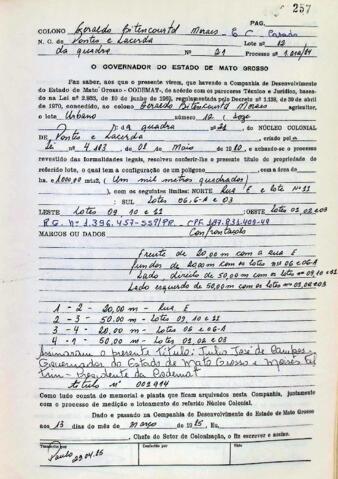 257
PAG.
COLONO Geraldo Bitencourtd Moraes - E C Casado
N. C. de Pontes e Lacerda Lote nº 12
da quadra Nº 21 Processo nº 1.012/84
O GOVERNADOR DO ESTADO DE MATO GROSSO
Faz saber, aos que o presente virem, que havendo a Companhia de Desenvolvimento
do Estado de Mato Grosso - CODEMAT-, de acordo com os pareceres Técnico e Jurídico, baseados
na Lei nº 2.983, de 10 de junho de 1969, regulamentada pelo Decreto nº 1.138, de 39 de abril
de 1970, concedido ao colono Geraldo Bitencourtd Moraes agricultor,
o lote Urbano número 12 ( doze
) na quadra nº 21, do NÚCLEO COLONIAL
DE Pontes e Lacerda, criado pela
Lei nº 4.183 de 01 de Maio de 1980, e achando-se o processo
revestido das formalidades legais, resolveu conferir-lhe o presente título de propriedade do
referido lote, o qual tem a configuração de um polígono com a área de
ha 1000,00 mts2, ( Um mil metros quadrados)
, com os seguintes limites: NORTE Rua E e lote Nº 11
SUL Lotes 06, 6-A e 03
LESTE Lotes 09, 10 e 11 ; OESTE lotes 01, 02 e 03
R.G. nº 1.396.457-SSP/PR. CPF. 187.831.409-49
MARCOS OU DADOS Confrontação
Frente de 20,00m com a rua E
fundos de 20,00m com os lotes nºs 06 e 06-A
Lado direito de 50,00m com os lotes nºs 09, 10 e 11
Lado esquerdo de 50,00m com os lotes nºs 01, 02 e 03
1 - 2 - 20,00m - Rua E
2 - 3 - 50,00m - Lotes 09, 10 e 11
3 - 4 - 20,00m - Lotes 06 e 06-A
4 - 1 - 50,00m - Lotes 01, 02 e 03
Assinaram o presente Título: Julio José de Campos -
Governador do Estado de Mato Grosso e Moisés
- Presidente da Codemat
título nº 002914
Como tudo consta do memorial e planta que ficam arquivados nesta Companhia, juntamente
com o processo de medição e loteamento do referido Núcleo Colonial.
Dado e passado na Companhia de Desenvolvimento do Estado de Mato Grosso
aos 13 dias do mês de março de 1985, Eu,
, Chefe do Setor de Colonização, o fiz escrever e assino.
Paulo
29.04.85